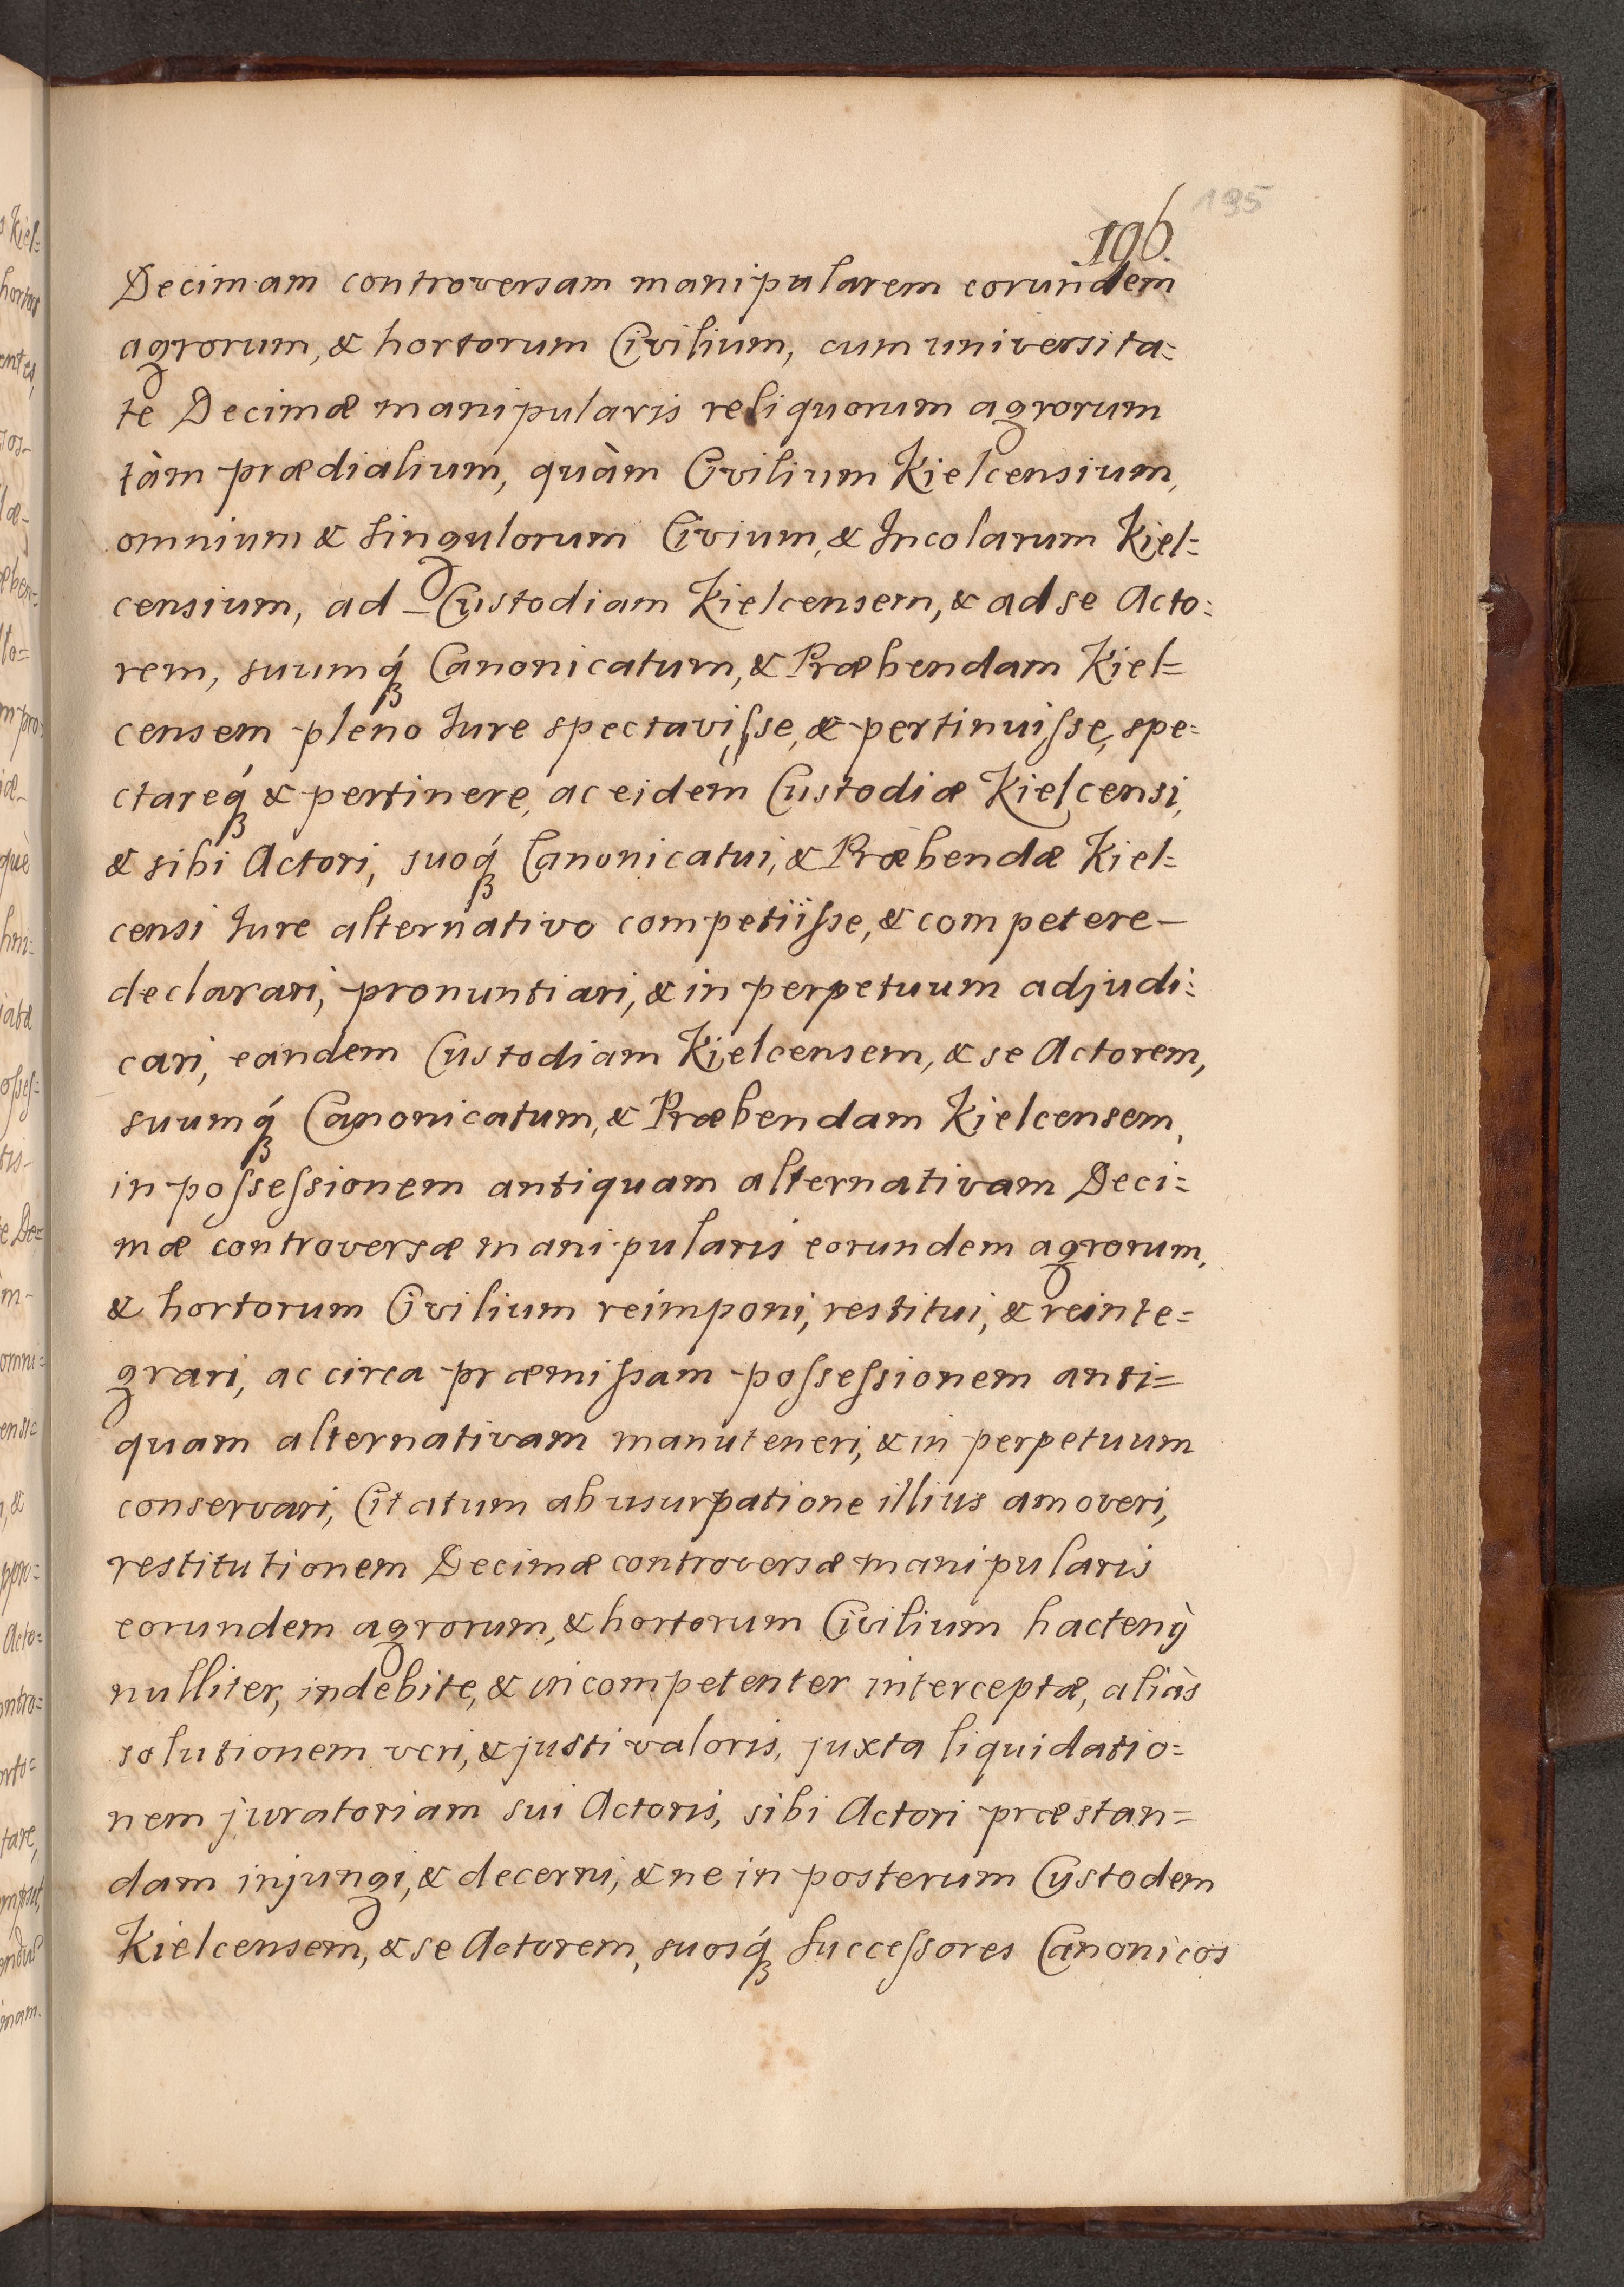 195
196.
Decimam controversam manipularem eorundem
agrorum, & hortorum Civilium, cum universita=
te Decimæ manipularis reliquorum agrorum
tàm prædialium, quàm Civilium Kielcensium,
omnium & singulorum Civium, & Incolarum Kiel=
censium, ad – Custodiam Kielcensem, & ad se Acto=
rem, suumq́ꝫ Canonicatum, & Præbendam Kiel=
censem pleno Jure spectaviſse, & pertinuiſse, spe=
ctareq́ꝫ & pertinere, ac eidem Custodiæ Kielcensi,
& sibi Actori, suoq́ꝫ Canonicatui, & Præbendæ Kiel=
censi Jure alternativo competiiſse, & competere –
declarari, pronuntiari, & in perpetuum adjudi=
cari, eandem Custodiam Kielcensem, & se Actorem,
suumq́ꝫ Canonicatum, & Præbendam Kielcensem,
in poſseſsionem antiquam alternativam Deci=
mæ controversæ manipularis eorundem agrorum,
& hortorum Civilium reimponi, restitui, & reinte=
grari, ac circa præmiſsam poſseſsionem anti=
quam alternativam manuteneri, & in perpetuum
conservari, Citatum ab usurpatione illius amoveri,
restitutionem Decimæ controversæ manipularis
eorundem agrorum, & hortorum Civilium hactenꝰ
nulliter, indebite, & incompetenter interceptæ, aliàs
solutionem veri, & justi valoris, juxta liquidatio=
nem juratoriam sui Actoris, sibi Actori præstan=
dam injungi, & decerni, & ne in posterum Custodem
Kielcensem, & se Actorem, suosq́ꝫ Succeſsores Canonicos